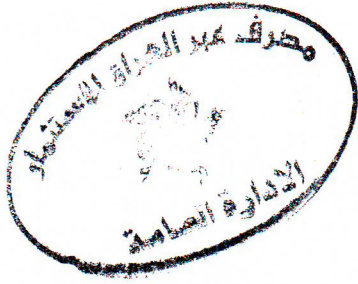 مصرف عبر العراق للاستثمار
الادارة العامة